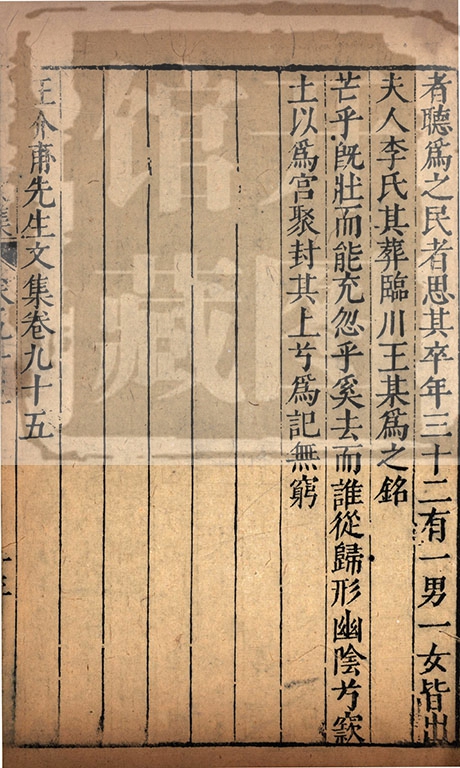 者聽爲之民者思其卒年三十二有一男一女皆出
夫人李氏其葬臨川王某爲之銘
芒乎旣壯而能充忽乎奚去而誰從歸形幽陰兮窾
土以爲宮聚封其上兮爲記無窮
王介甫先生文集卷九十五
館
藏